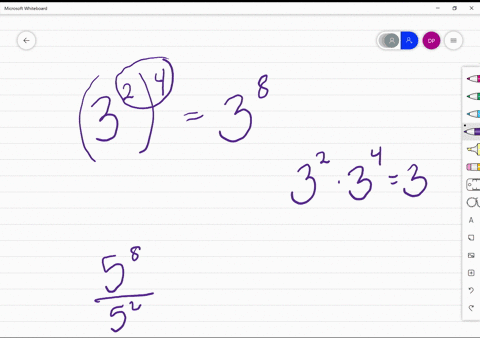 Microsoft Whiteboard
DP
(3²)⁴ = 3⁸
3² · 3⁴ = 3
5⁸
5²
A